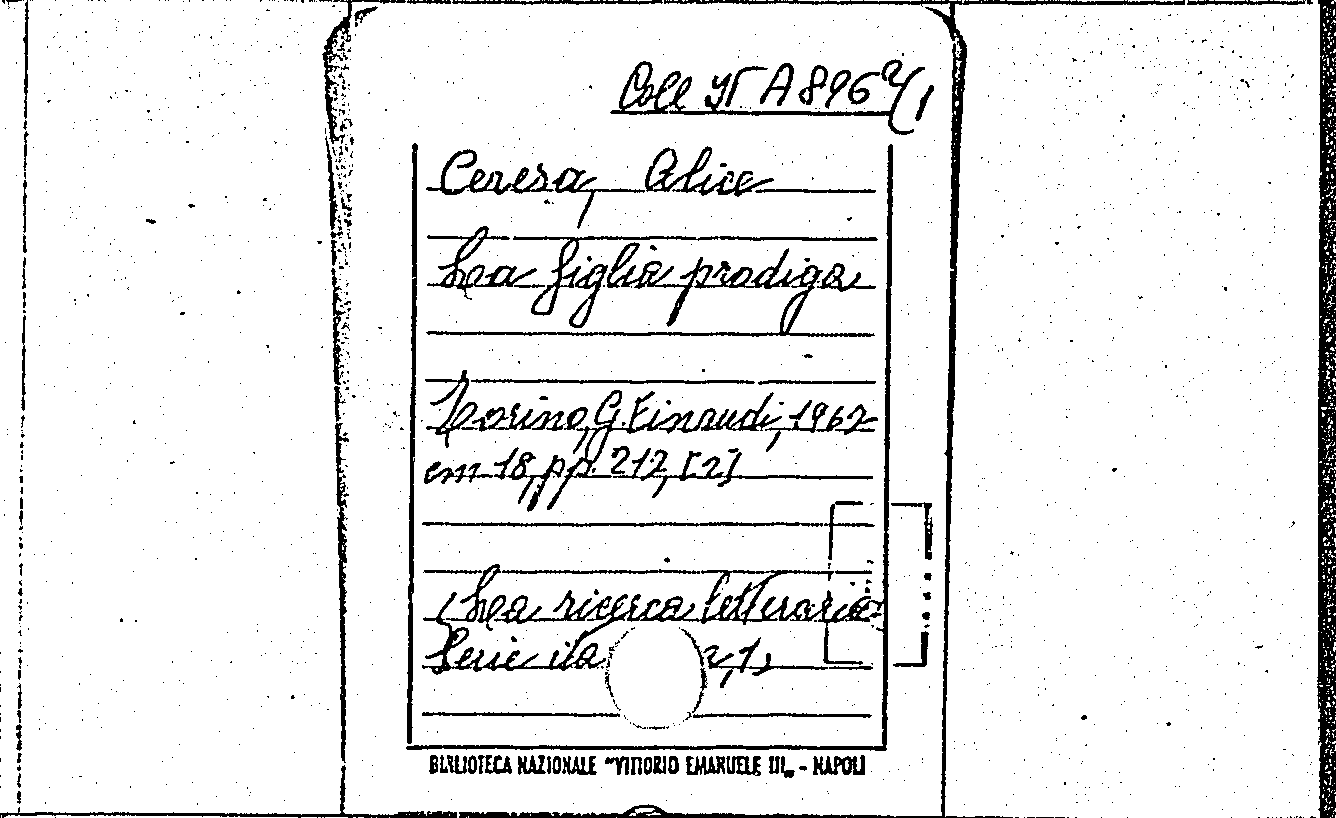 Coll. It A 896 2/1
Ceresa, Alice
La figlia prodiga
Torino, G. Einaudi, 1967
cm 18, pp. 212, [2]
(La ricerca letteraria
Serie ita a, 1)
BIBLIOTECA NAZIONALE "VITTORIO EMANUELE III„ - NAPOLI